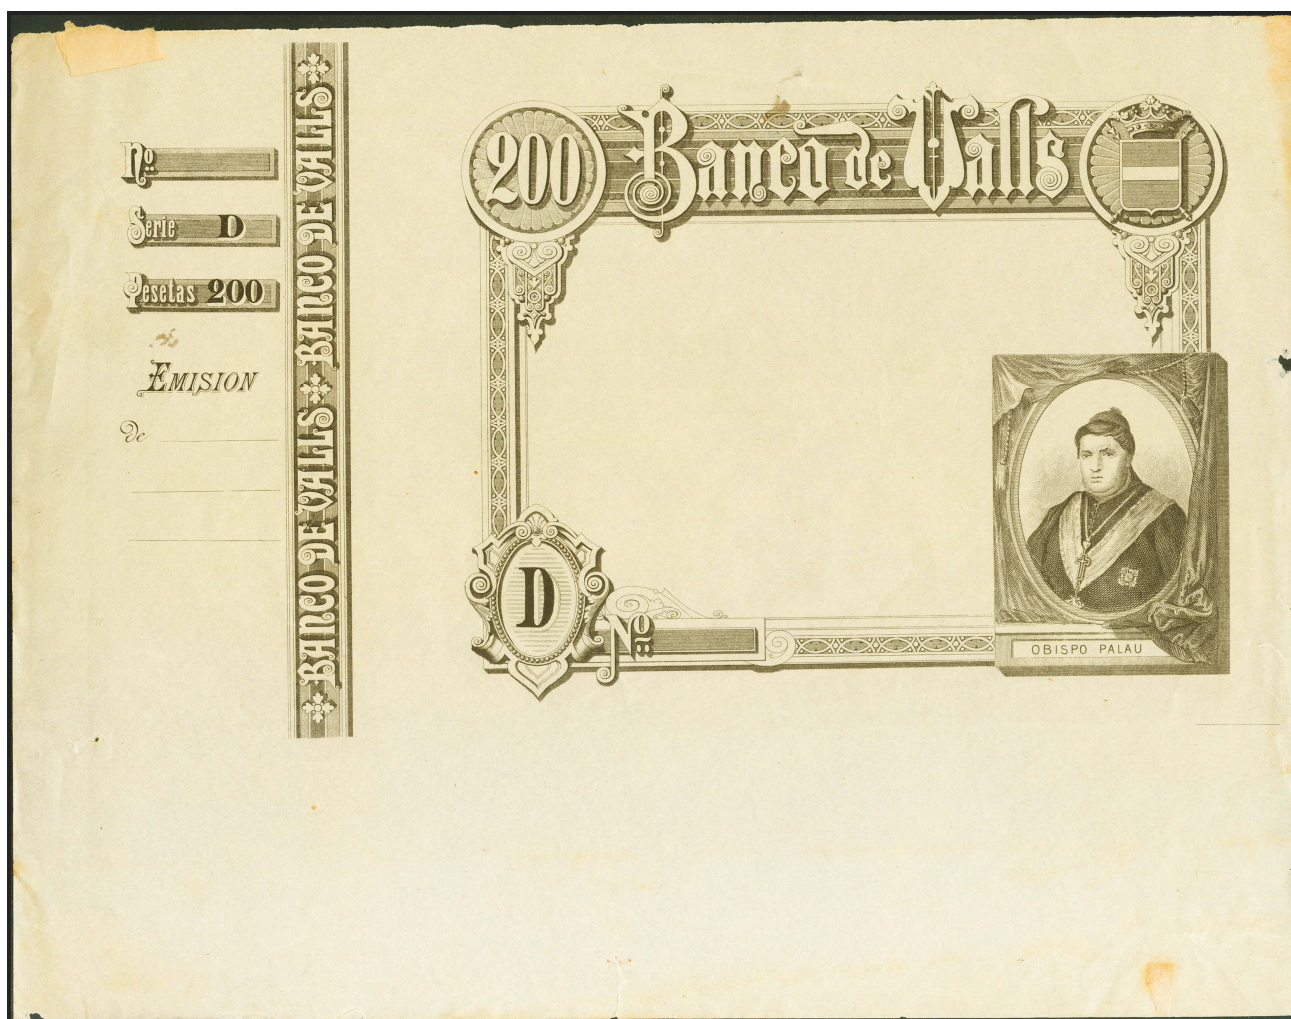 Nº
Serie D
Pesetas 200
EMISION
de
BANCO DE VALLS BANCO DE VALLS
200 Banco de Valls
D Nº
OBISPO PALAU